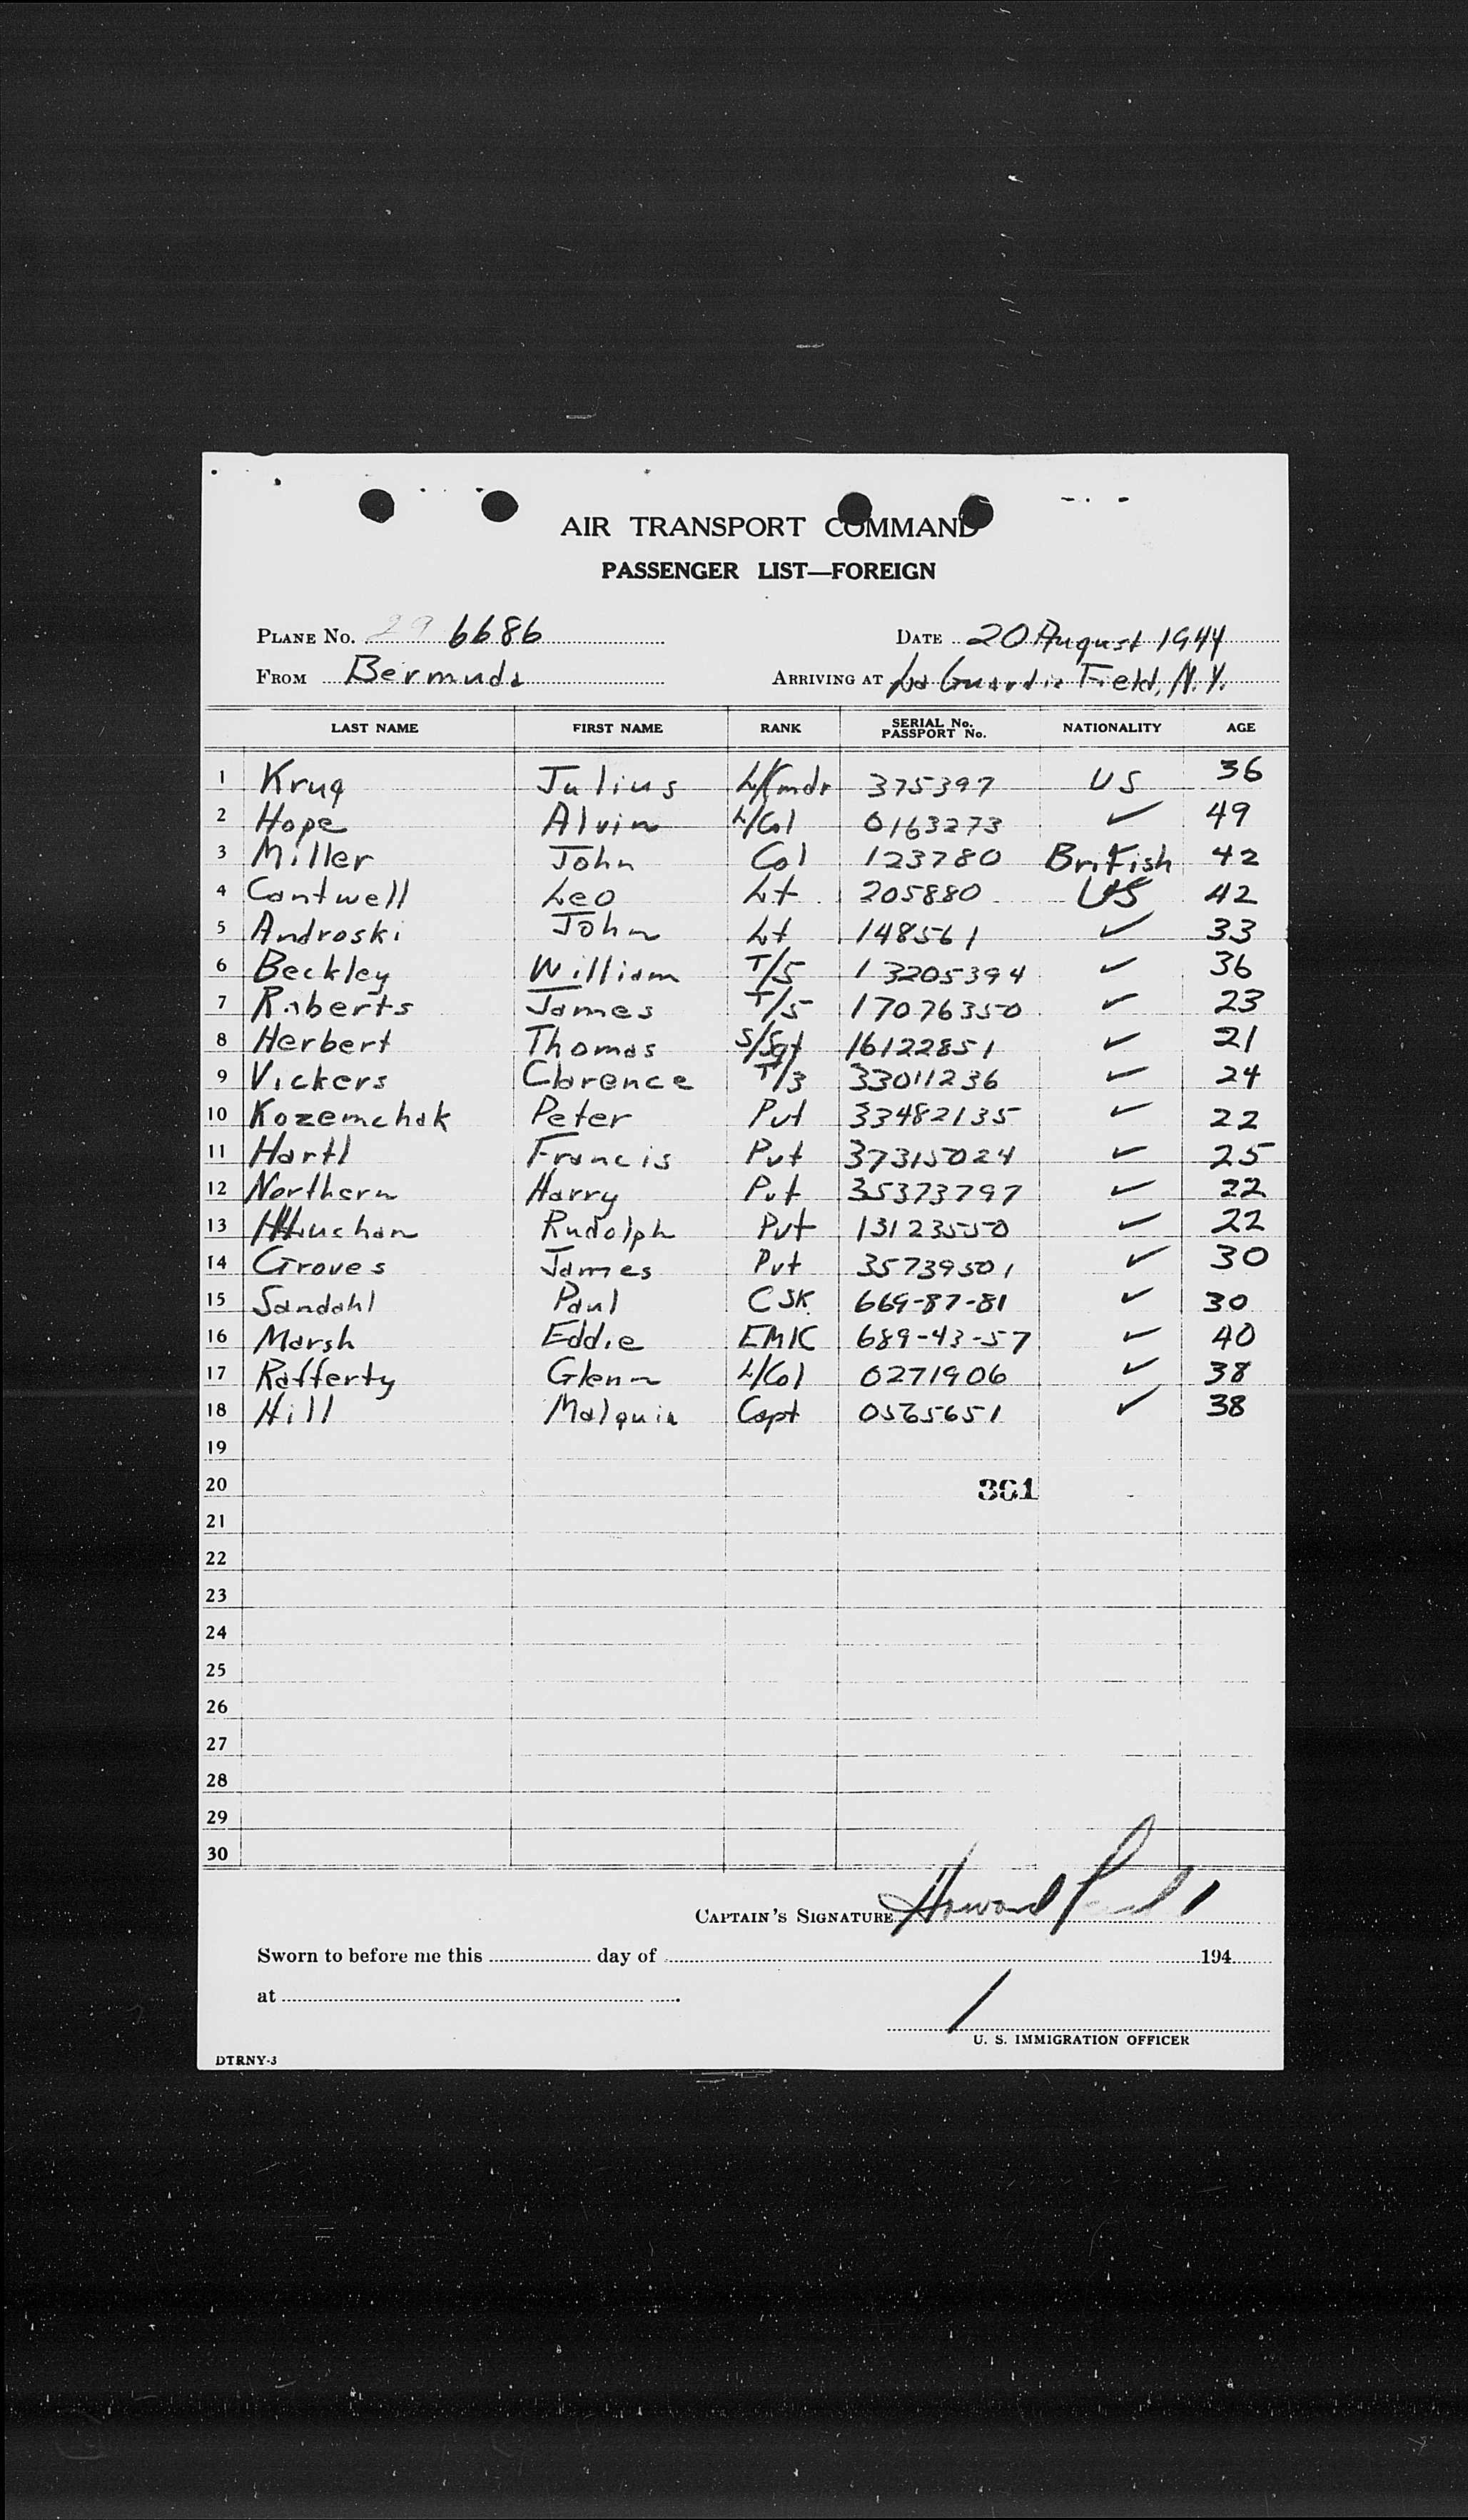 AIR TRANSPORT COMMAND
PASSENGER LIST—FOREIGN
PLANE No. 29 6686 DATE 20 August 1944
FROM Bermuda ARRIVING AT La Guardia Field, N.Y.
LAST NAME FIRST NAME RANK SERIAL No. PASSPORT No. NATIONALITY AGE
1 Krug Julius Lt/Cmdr 375397 US 36
2 Hope Alvin Lt/Col 0163273 ✓ 49
3 Miller John Col 123780 British 42
4 Cantwell Leo Lt 205880 US 42
5 Androski John Lt 148561 ✓ 33
6 Beckley William T/5 13205394 ✓ 36
7 Roberts James T/5 17076350 ✓ 23
8 Herbert Thomas S/Sgt 16122851 ✓ 21
9 Vickers Clarence T/3 33011236 ✓ 24
10 Kozemchak Peter Pvt 33482135 ✓ 22
11 Hartl Francis Pvt 37315024 ✓ 25
12 Northern Harry Pvt 35373797 ✓ 22
13 Rudolph Pvt 13123550 ✓ 22
14 Groves James Pvt 35739501 ✓ 30
15 Sandahl Paul CSK 669-87-81 ✓ 30
16 Marsh Eddie EM1C 689-43-57 ✓ 40
17 Rafferty Glenn L/Col 0271906 ✓ 38
18 Hill Malquin Capt 0565651 ✓ 38
19
20 301
21
22
23
24
25
26
27
28
29
30
CAPTAIN'S SIGNATURE Howard
Sworn to before me this day of 194
at
U. S. IMMIGRATION OFFICER
DTRNY-3